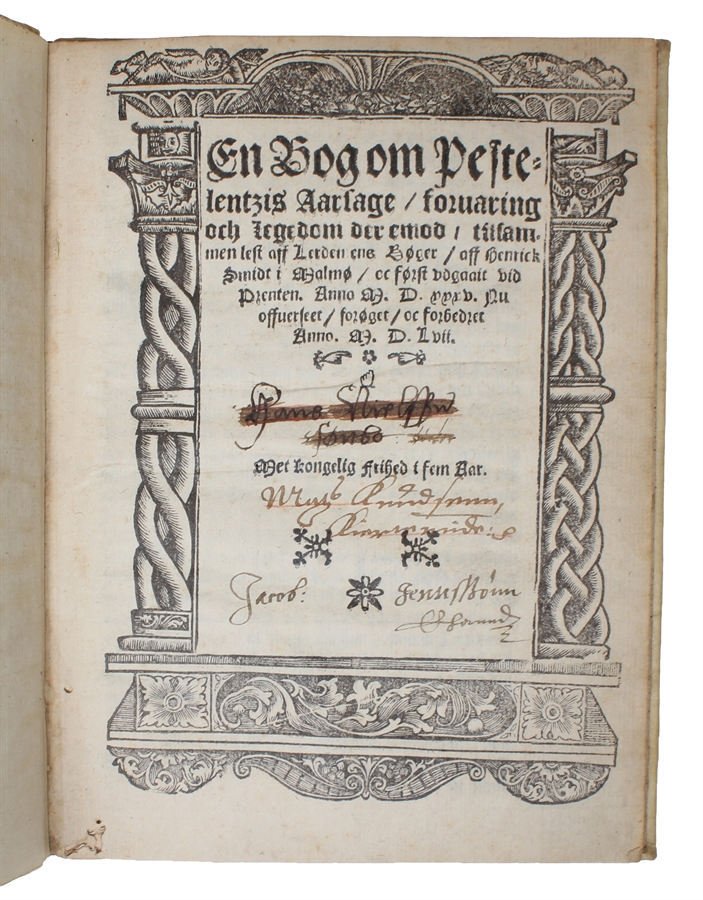 En Bog om Peste-
lentzis Aarsage / foruaring
och Legedom der emod / tilsam-
men lest aff Lerden ens Bøger / aff Henrick
Smidt i Malmø / oc først vdgaait vid
Prenten. Anno M. D. xxxv. Nu
offuerseet / forøget / oc forbedret
Anno. M. D. Lvii.
Hans Nielssøn
Met kongelig Frihed i fem Aar.
Knudsenn,
Jacob: Jenssønn